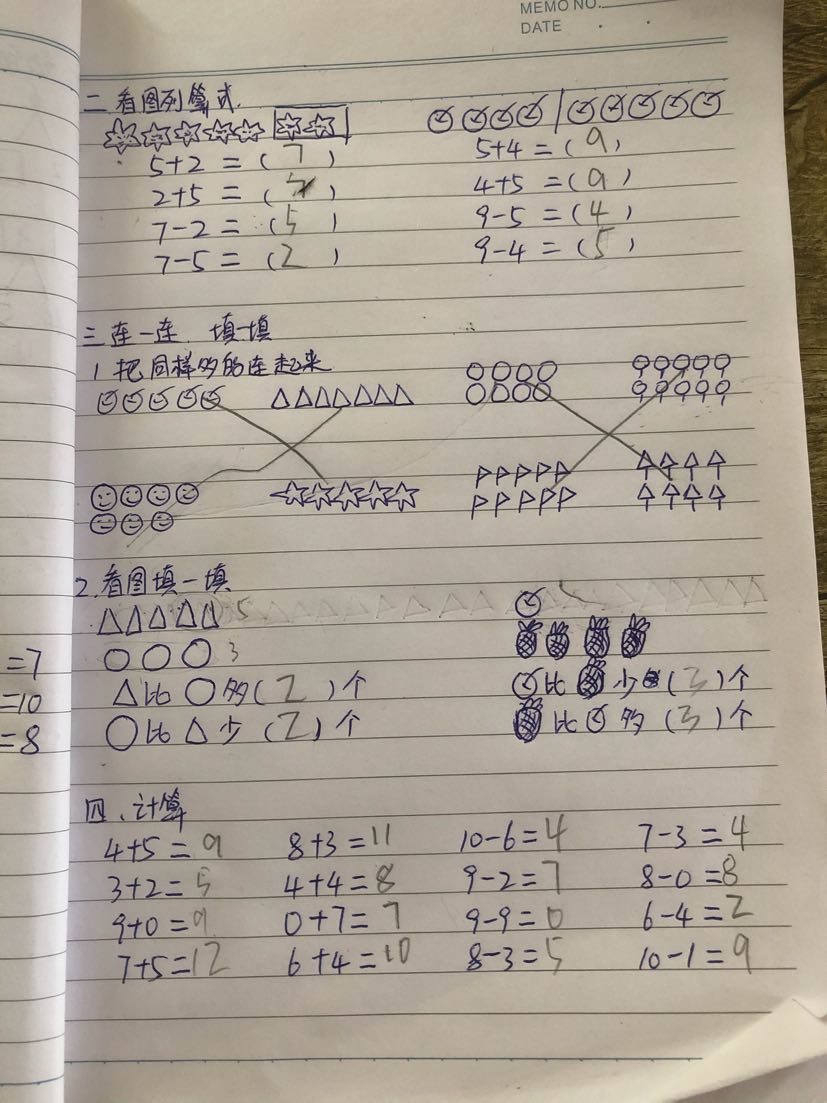 MEMO NO.
DATE
二 看图列算式.
5+2=(7)
2+5=( )
7-2=(5)
7-5=(2)
5+4=(9)
4+5=(9)
9-5=(4)
9-4=(5)
三 连一连 填一填
1 把同样多的连起来
2.看图填一填
5
3
△比○多(2)个
○比△少(2)个
比 少(3)个
比 多(3)个
=7
=10
=8
四、计算
4+5=9 8+3=11 10-6=4 7-3=4
3+2=5 4+4=8 9-2=7 8-0=8
9+0=9 0+7=7 9-9=0 6-4=2
7+5=12 6+4=10 8-3=5 10-1=9